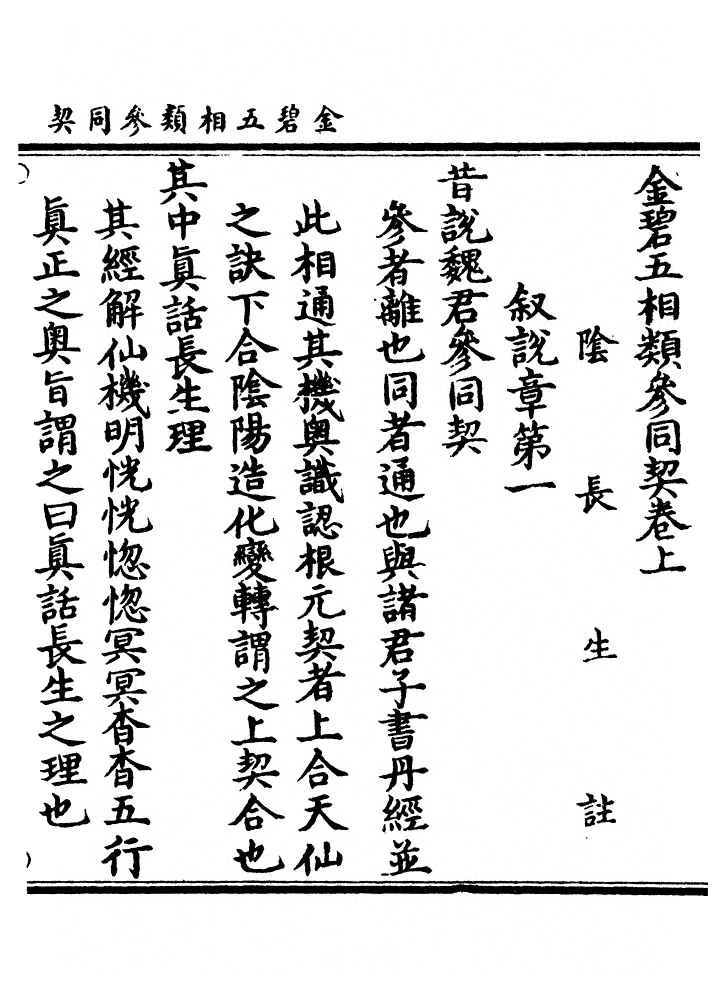 金碧五相類參同契
金碧五相類參同契卷上
陰長生註
叙說章第一
昔說魏君參同契
參者離也同者通也與諸君子書丹經並
此相通其機奥識認根元契者上合天仙
之訣下合陰陽造化變轉謂之上契合也
其中眞話長生理
其經解仙機明恍恍惚惚冥冥杳杳五行
眞正之奥旨謂之曰眞話長生之理也